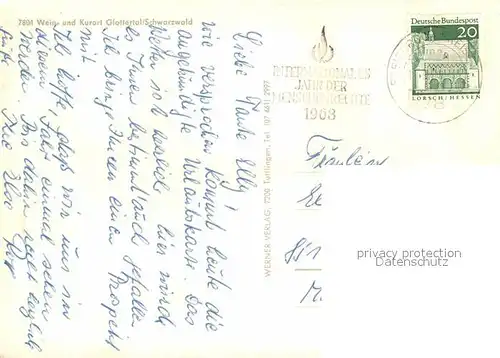 7804 Wein- und Kurort Glottertal/Schwarzwald
Liebe Tante Elly!
wie versprochen kommt heute die
angekündigte Urlaubskarte. Das
Wetter ist herrlich, hier würde
es Ihnen bestimmt auch gefallen.
Ich bringe Ihnen einen Prospekt
mit.
Ich hoffe, daß wir uns in
diesem Jahr einmal sehen
werden. Bis dahin recht herzliche
Grüße
Ihre
WERNER-VERLAG, 7200 Tuttlingen, Tel.
INTERNATIONALES
JAHR DER
MENSCHENRECHTE
1968
Deutsche Bundespost
20
LORSCH/HESSEN
Fräulein
privacy protection
Datenschutz